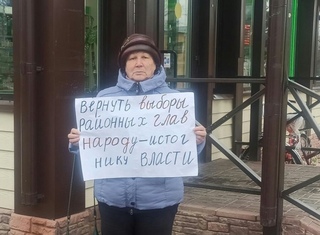 вернуть выборы
районных глав
народу-источ
нику власти